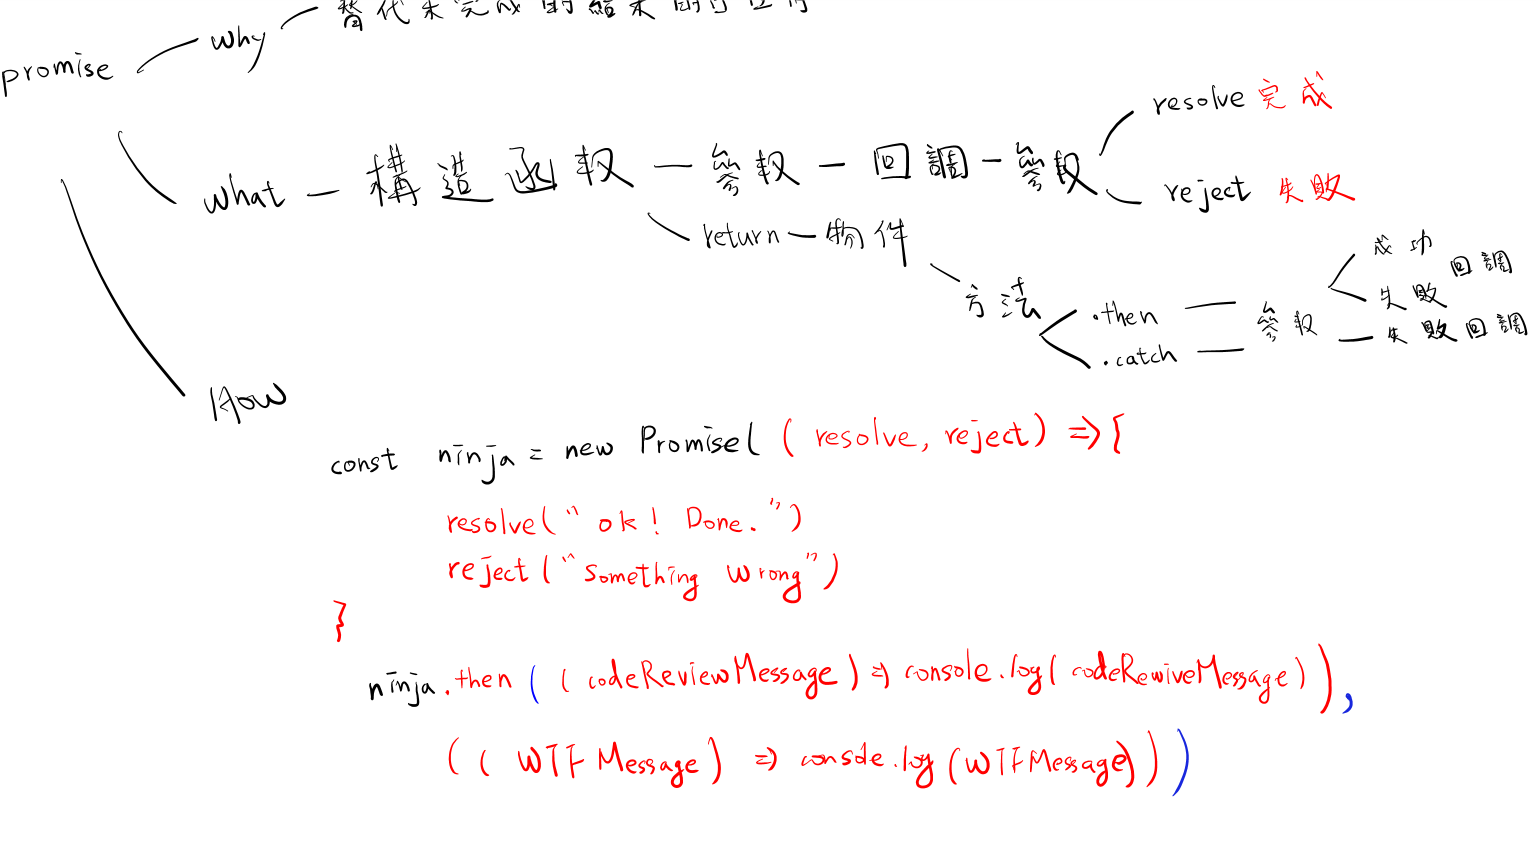 promise
why
替代未完成的結果
what － 構造函数 － 參数 － 回調 － 參数
resolve 完成
reject 失敗
return － 物件
方法
.then
.catch
參数
成功
失敗
回調
失敗回調
How
const ninja = new Promise( ( resolve, reject) => {
resolve(" ok! Done. ")
reject ("something wrong")
}
ninja.then ( ( codeReviewMessage ) => console.log( codeRewiveMessage ) ),
( ( WTFMessage ) => console.log (WTFMessage) ) )